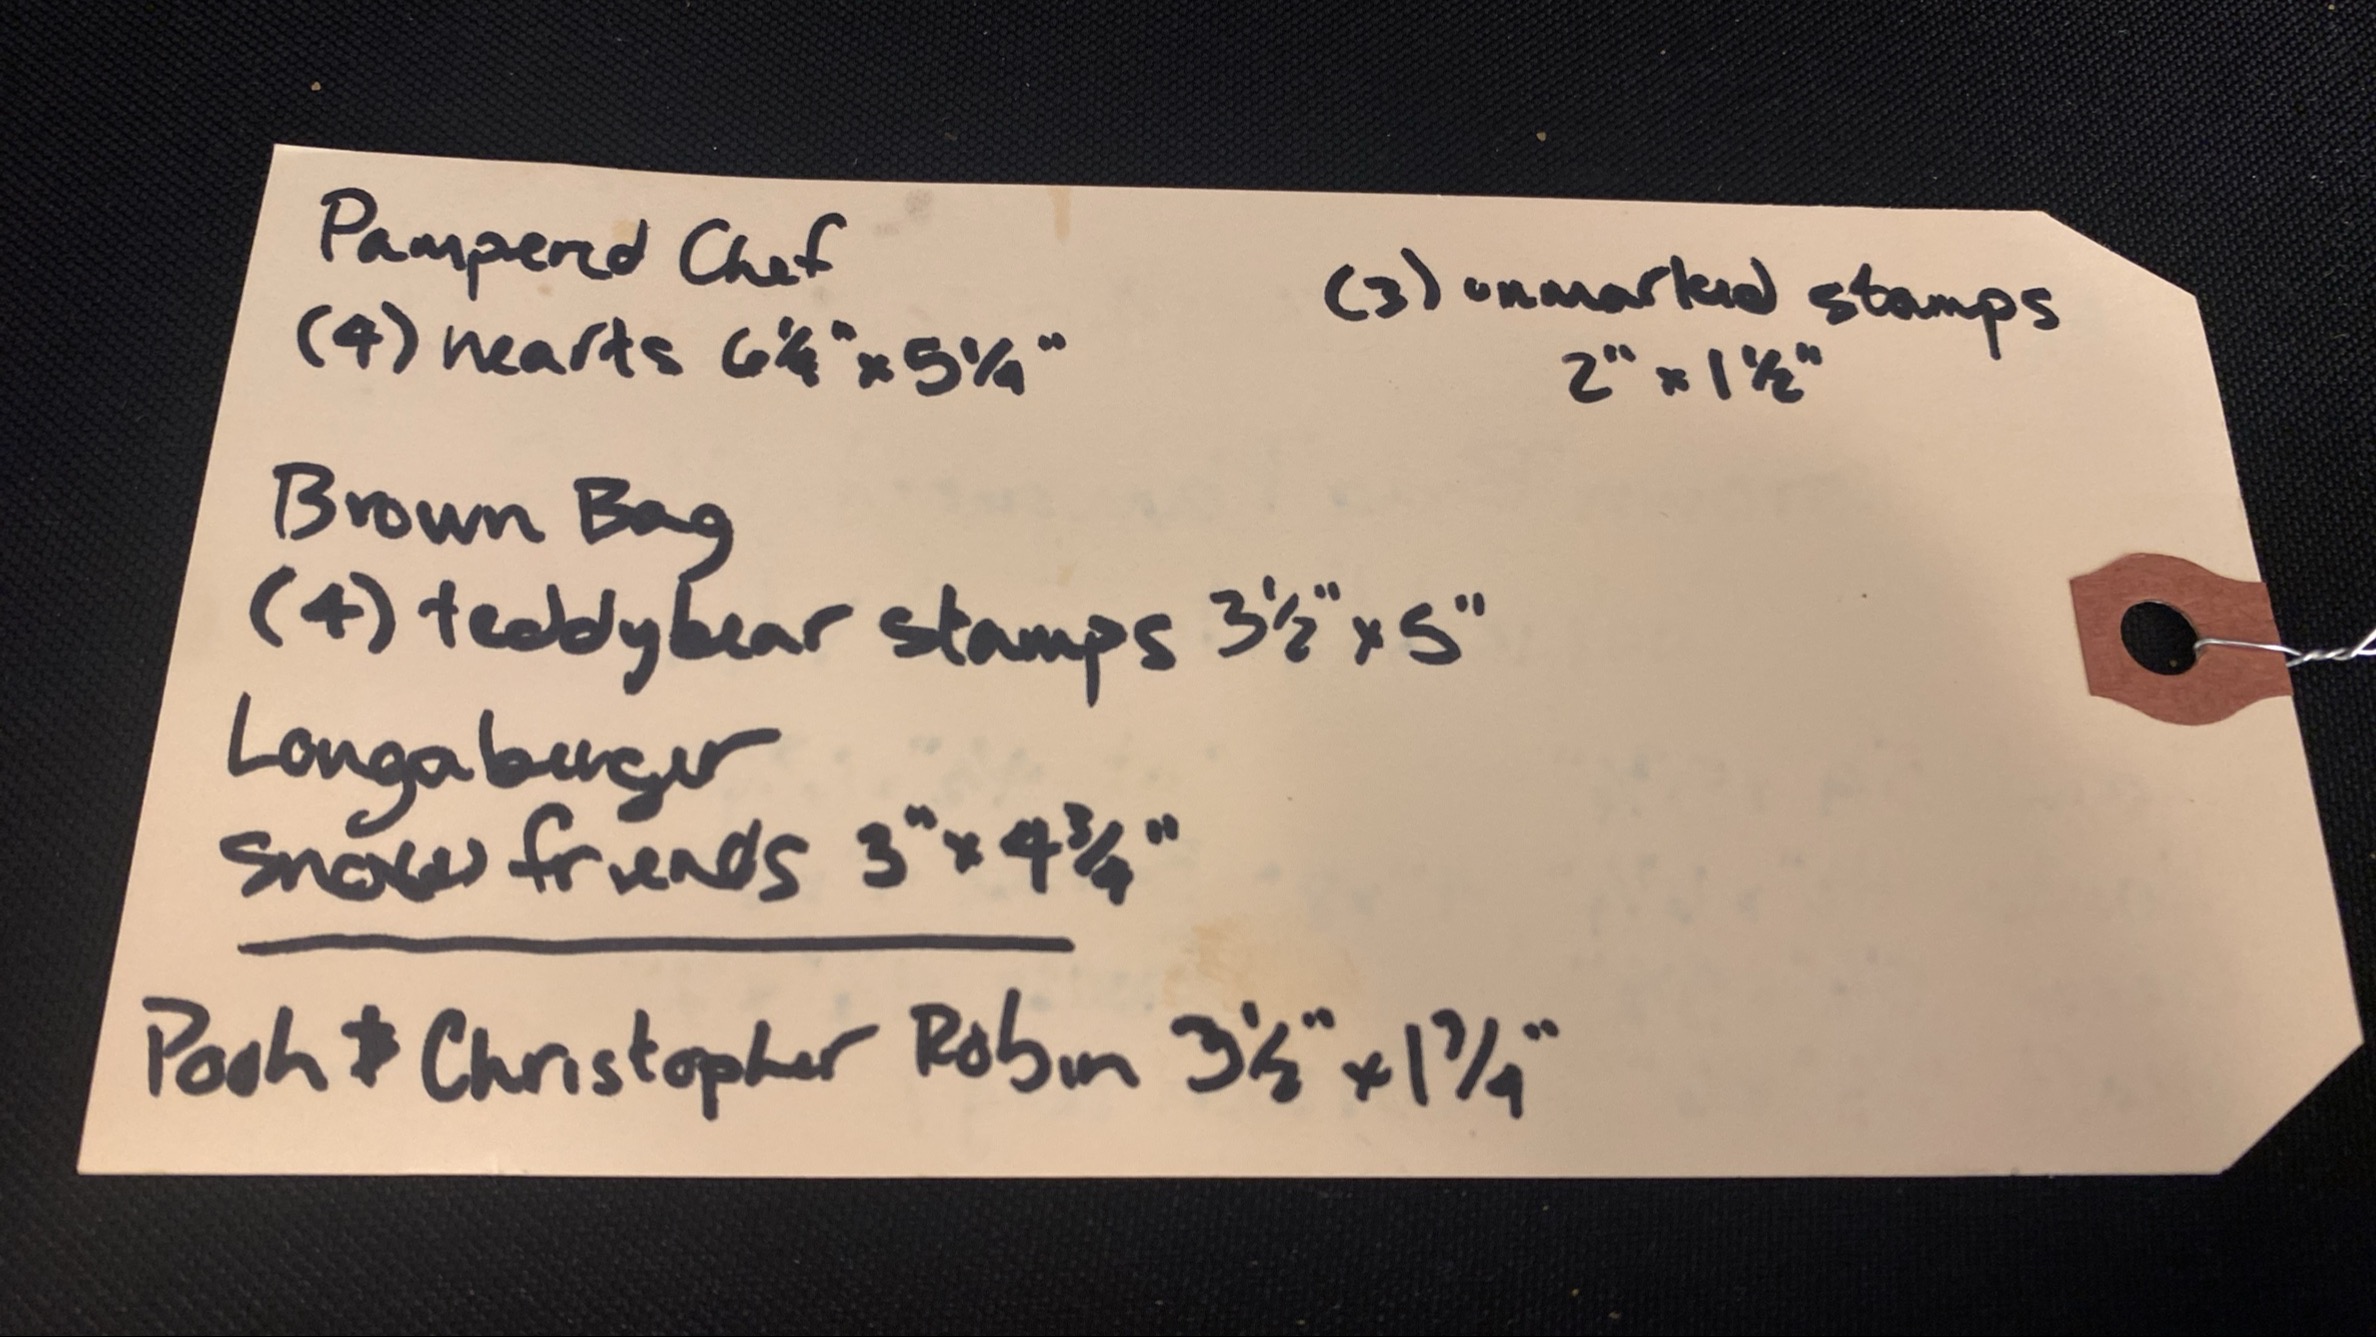 Pampered Chef
(4) hearts 6¼" x 5¼"
(3) unmarked stamps
2" x 1½"
Brown Bag
(4) teddybear stamps 3½" x 5"
Longaberger
snow friends 3" x 4¾"
Pooh & Christopher Robin 3½" x 1¾"